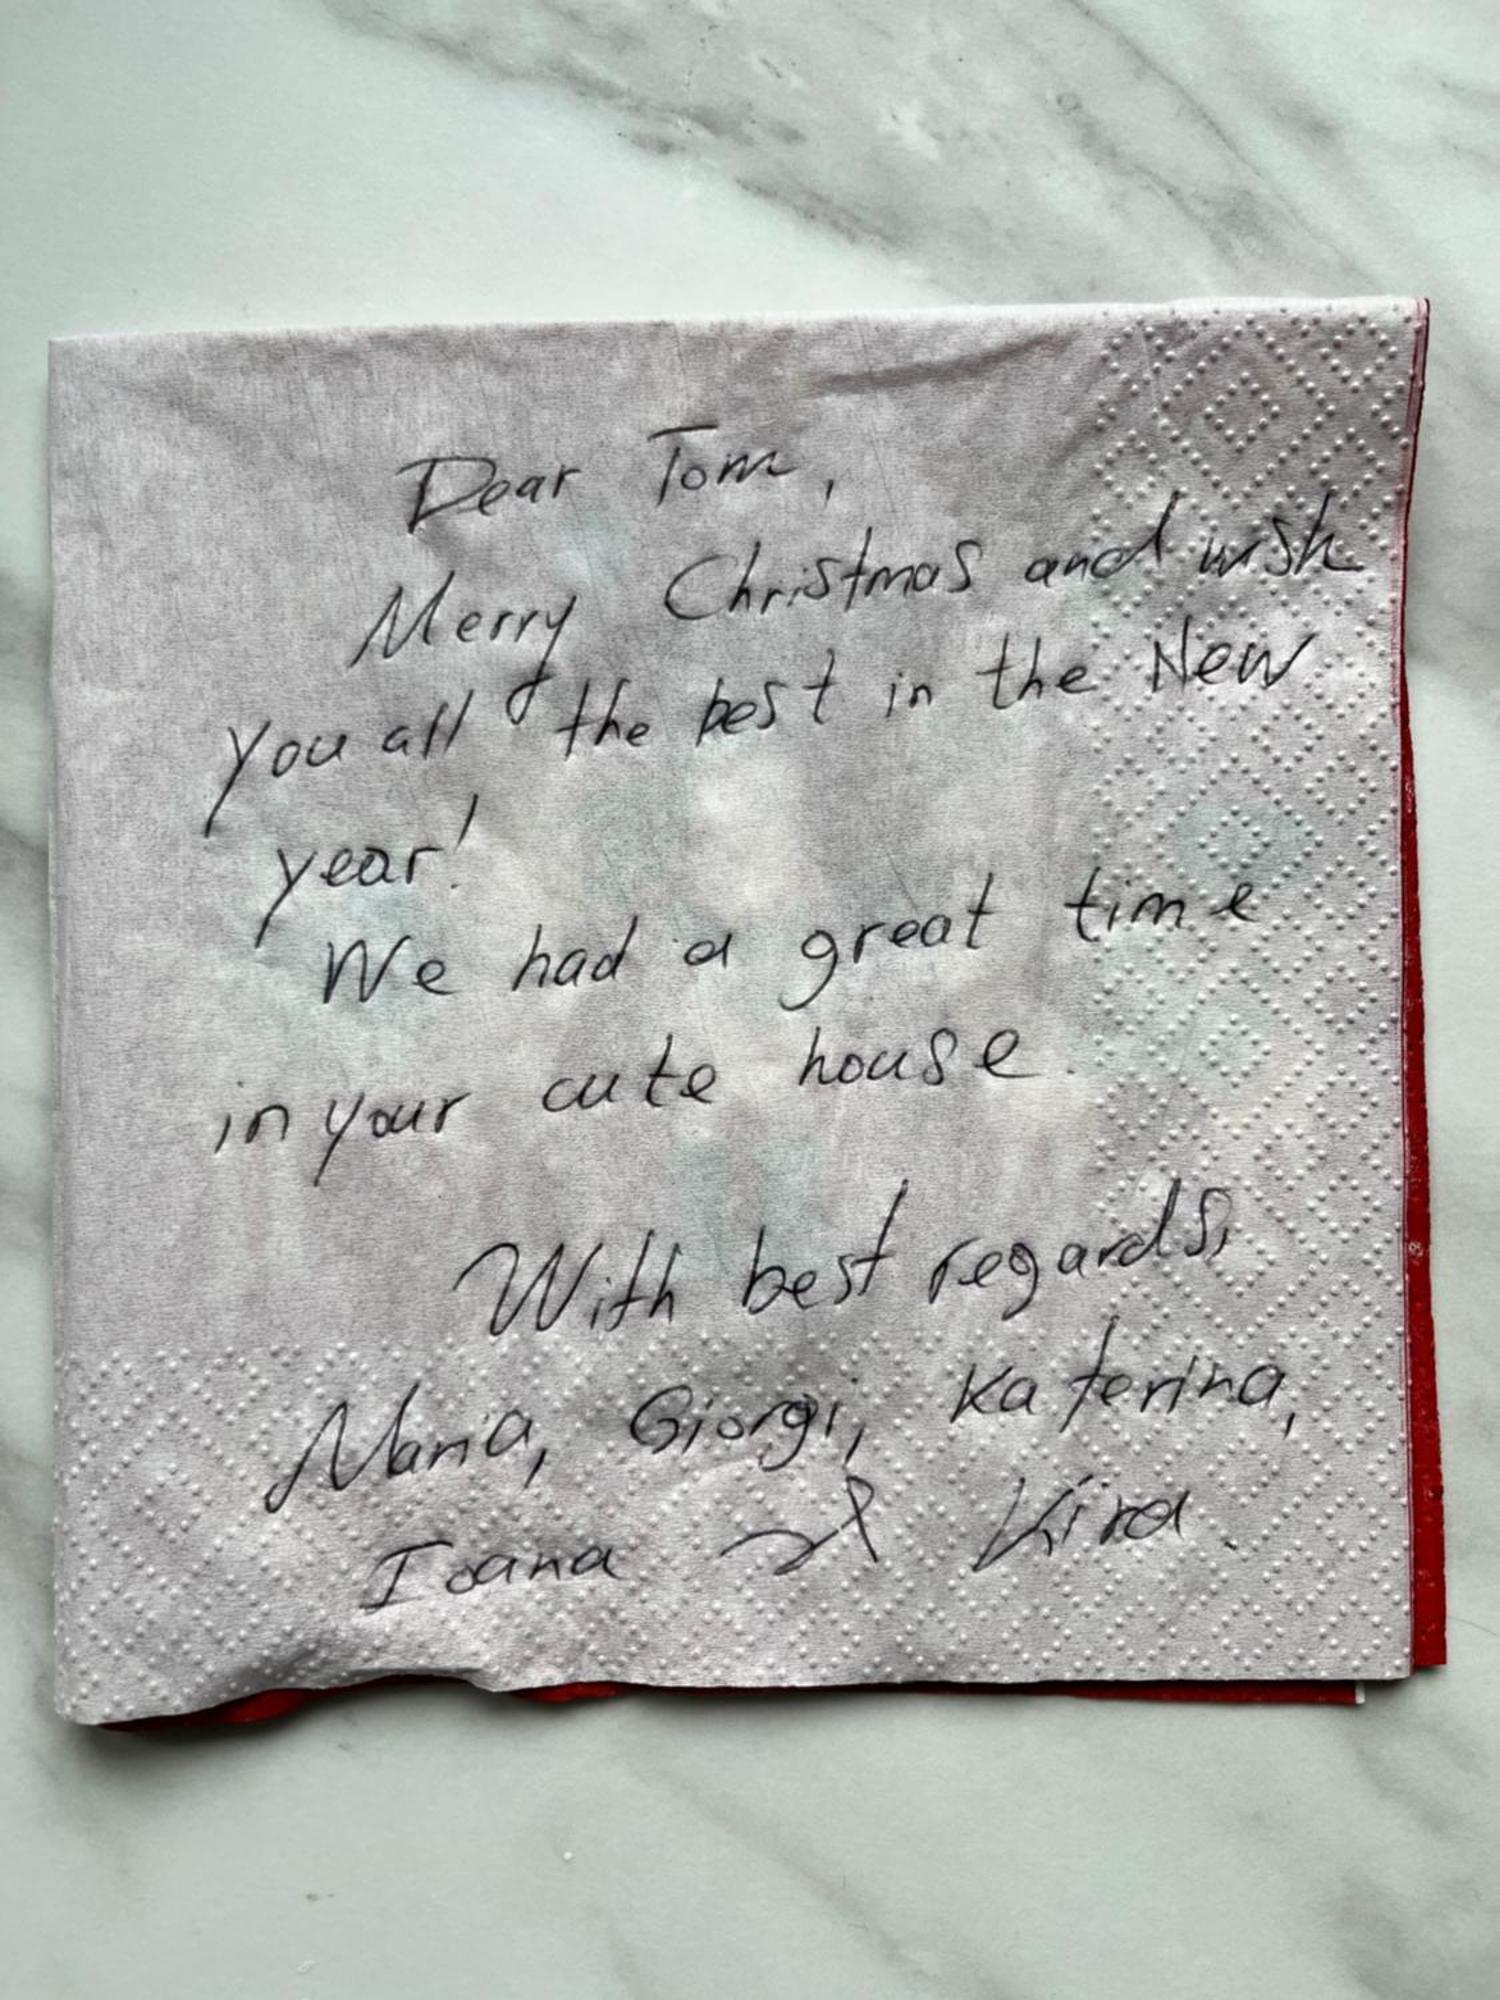 Dear Tom,
Merry Christmas and wish
you all the best in the New
year!
We had a great time
in your cute house.
With best regards,
Maria, Giorgi, Katerina,
Ioana & Kira.